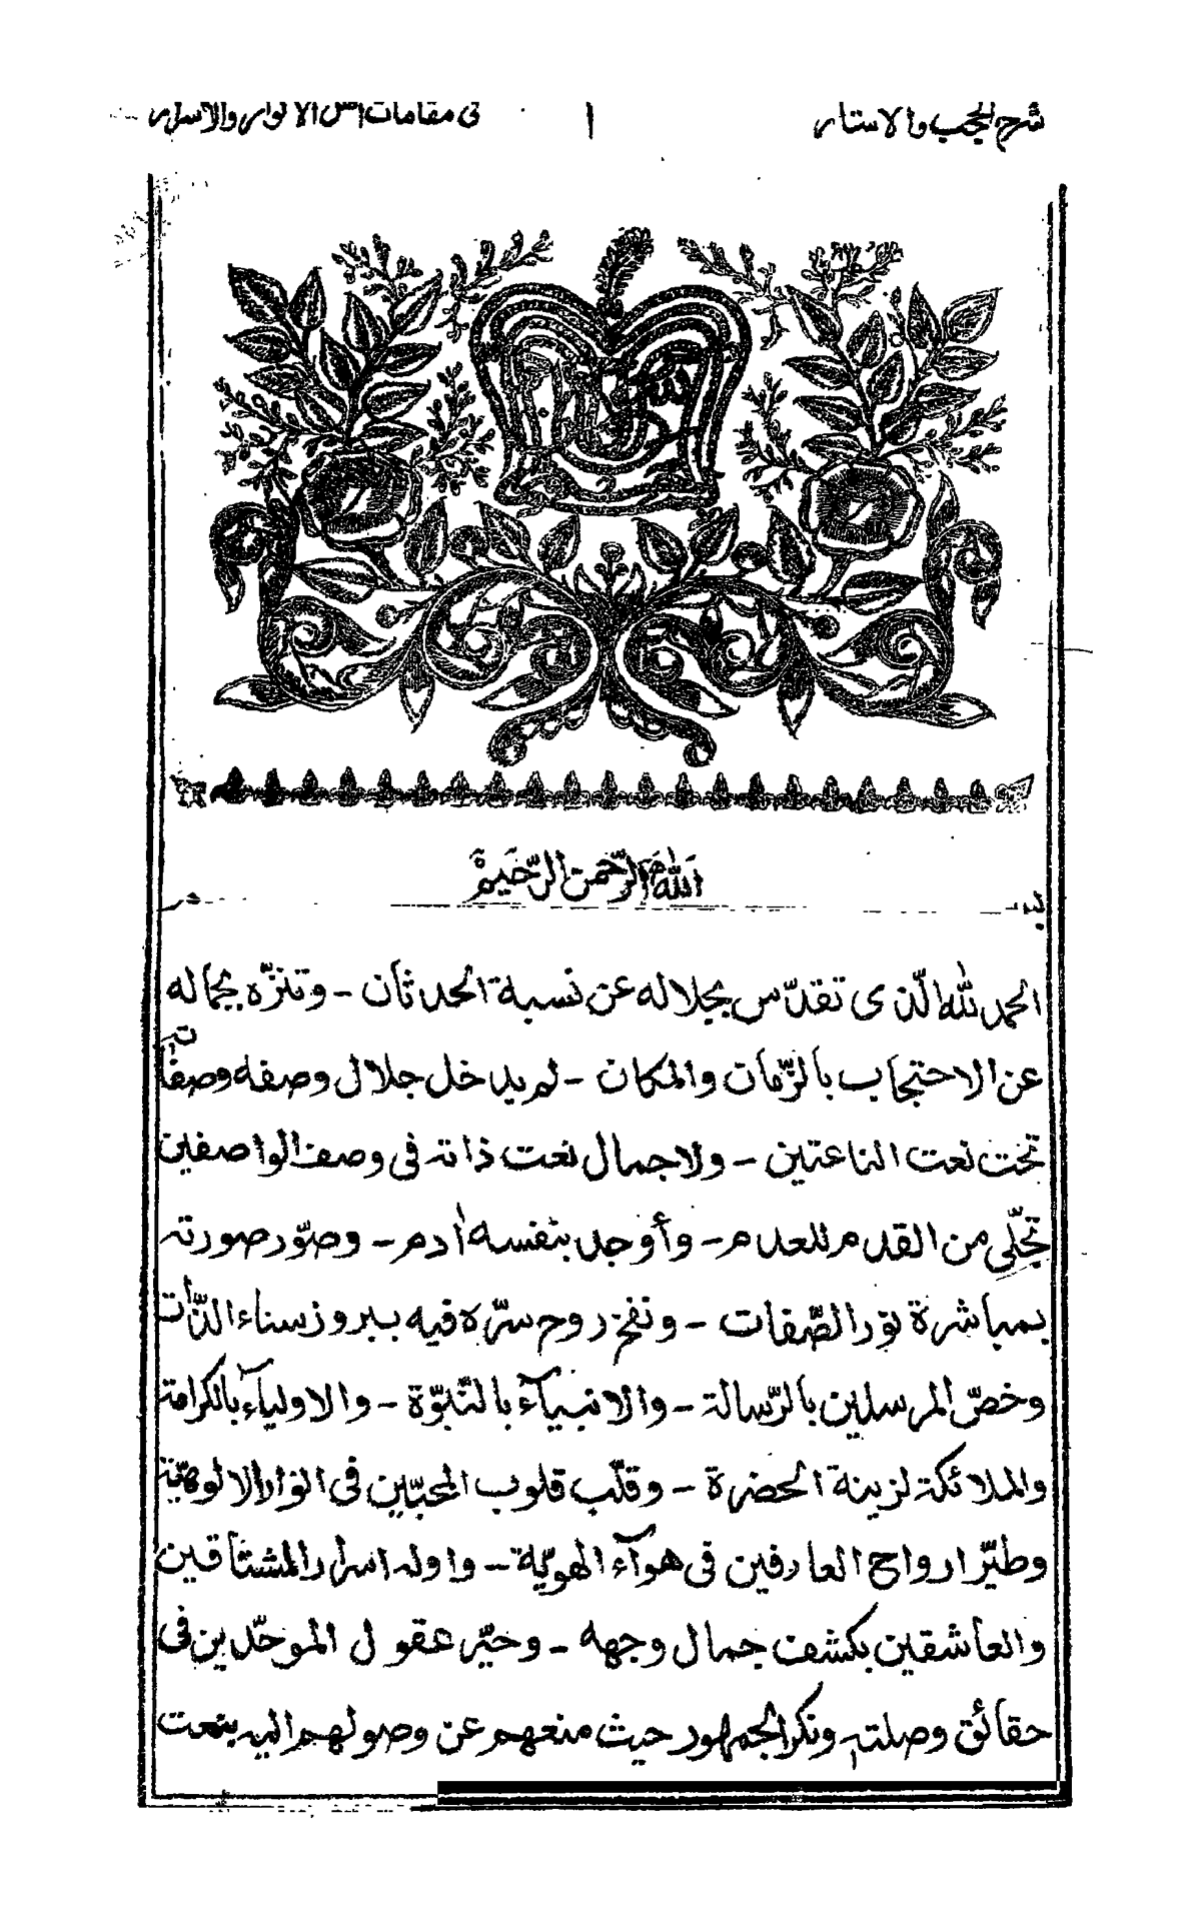 شرح الحجب والاستار
١
فى مقامات اهل الانوار والاسرار
بسم الله الرّحمن الرّحيم
الحمد لله الّذى تقدّس بجلاله عن نسبة الحدثان - وتنزّه بجماله
عن الاحتجاب بالزّمان والمكان - لم يدخل جلال وصفه وصفاته
تحت نعت الناعتين - ولا جمال نعت ذاته فى وصف الواصفين
تجلّى من القدم للعدم - وأوجد بنفسه اٰدم - وصوّر صورته
بمباشرة نور الصّفات - ونفخ روح سرّه فيه ببروز سناء الذّات
وخصّ المرسلين بالرّسالة - والانبيآء بالنّبوّة - والاوليآء بالكرامة
والملائكة لزينة الحضرة - وقلّب قلوب المحبّين فى انوار الالوهيّة
وطيّر ارواح العارفين فى هوآء الهويّة - واوله اسرار المشتاقين
والعاشقين بكشف جمال وجهه - وحيّر عقول الموحّدين فى
حقائق وصلته ونكر الجمهور حيث منعهم عن وصولهم اليه بنعت